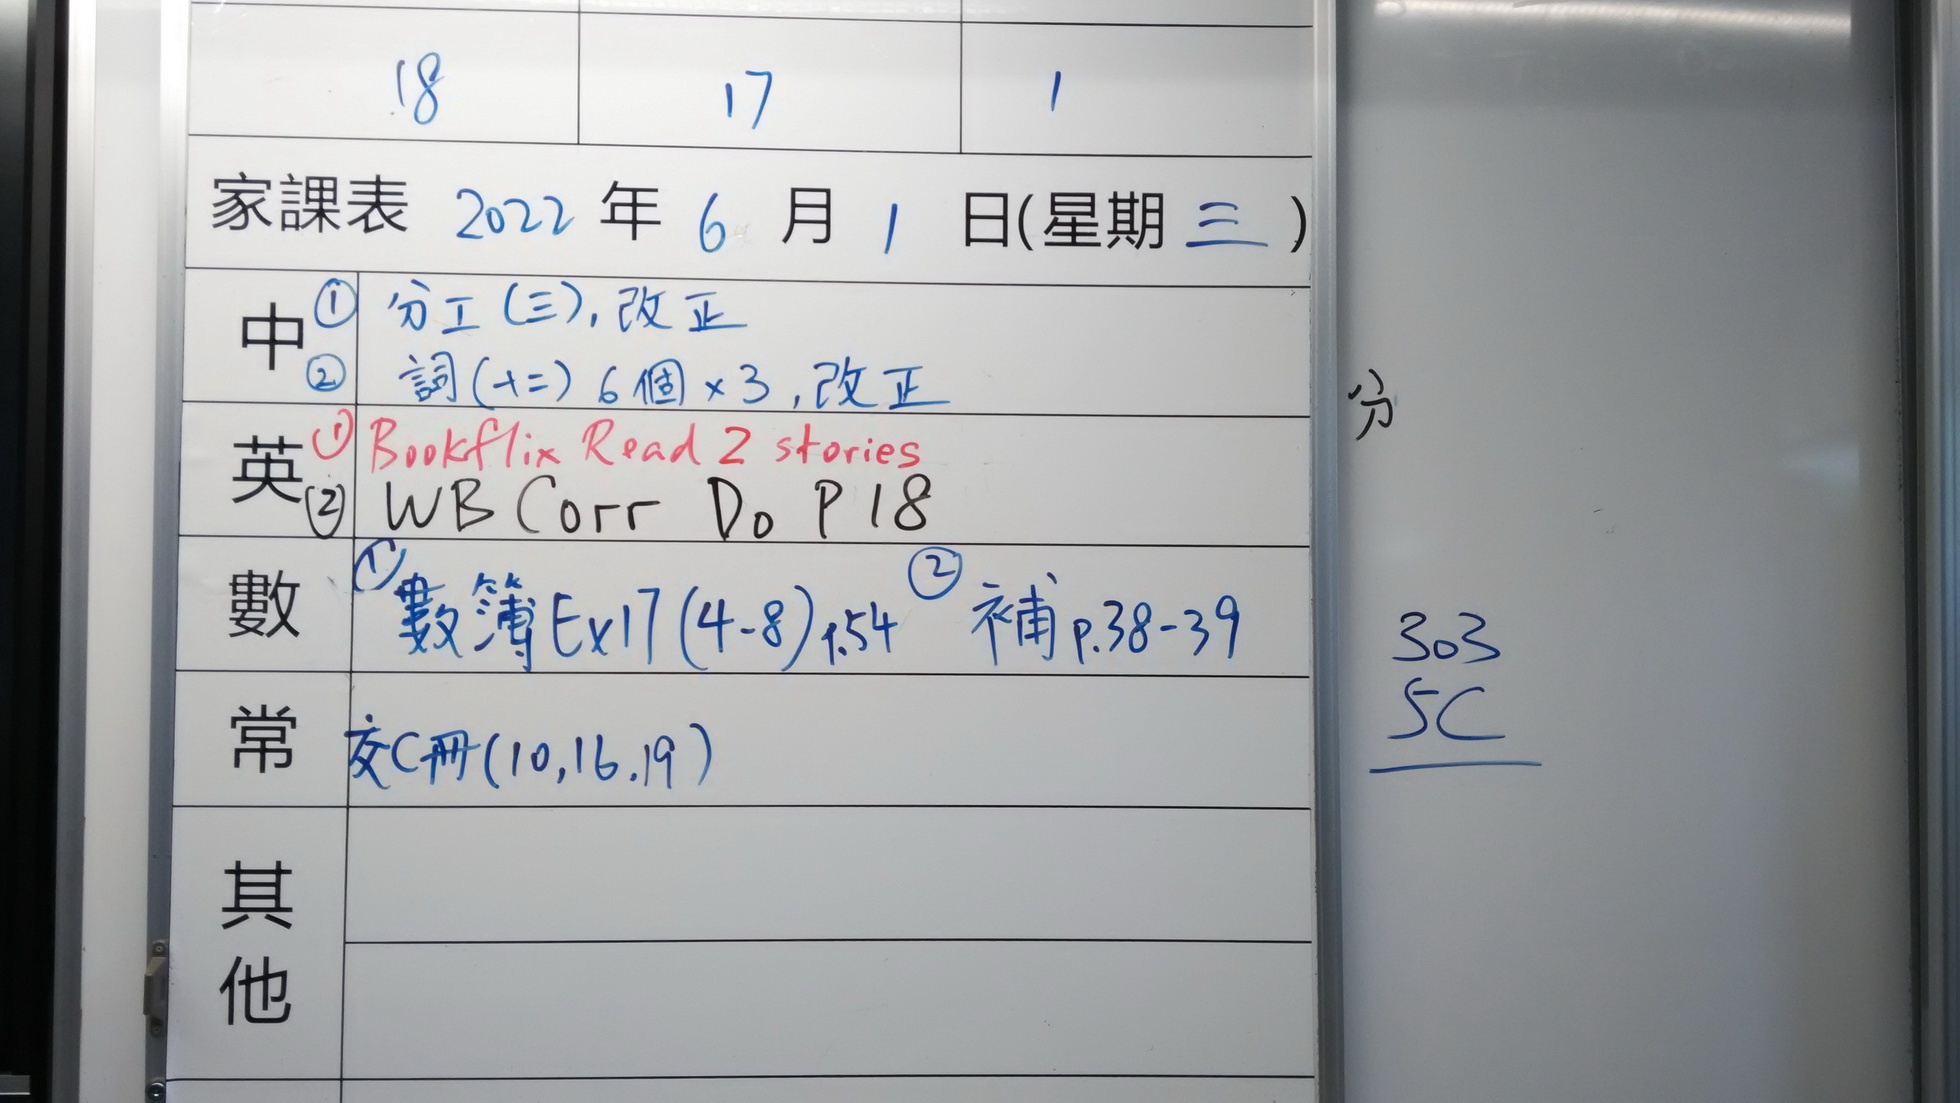 18 17 1
家課表 2022 年 6 月 1 日(星期 三 )
中 ① 分工(三),改正
② 詞(十二) 6個×3,改正
英 ① Bookflix Read 2 stories
② WB Corr Do P 18
數 ① 數簿Ex17(4-8)p.54 ② 補p.38-39
常 交C冊(10,16,19)
其他
分
303
5C